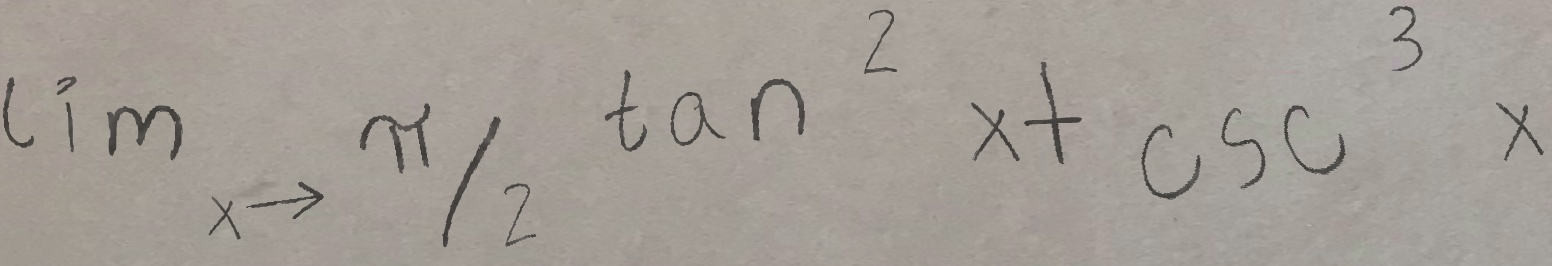 lim x→ π/2 tan² x + csc³ x